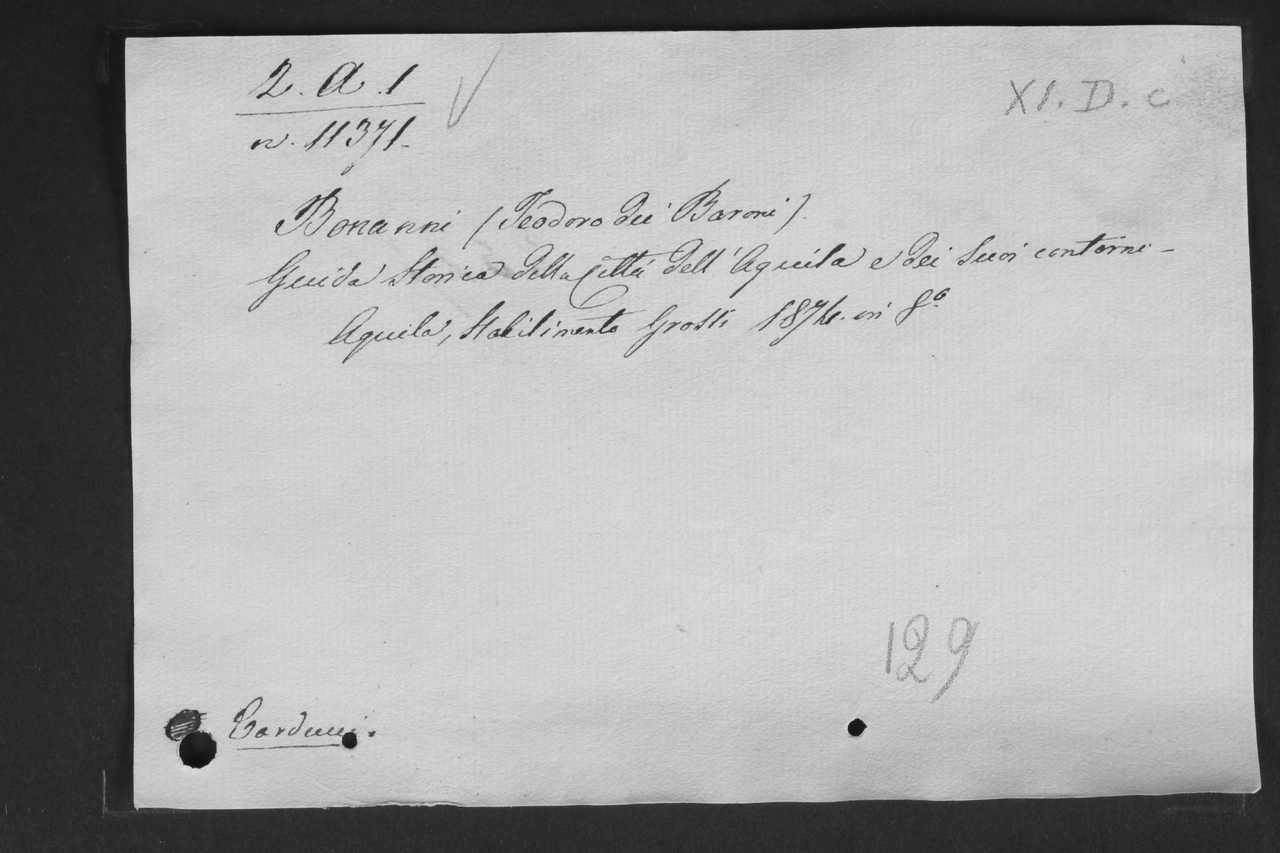 2. A. 1
n. 11371.
XI. D. c
Bonanni (Teodoro dei Baroni).
Guida Storica della Città dell'Aquila e dei suoi contorni -
Aquila, Stabilimento Grossi 1874. in 8º
129
Carducci.